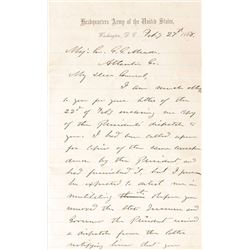 Headquarters Army of the United States,
Washington, D. C. Feby 27th 1868.
Maj. Gen. G. G. Meade,
Atlanta Ga.
My dear General,
I am much obliged
to you for your letter of the
22d of Feby enclosing me copy
of the President's dispatch to
you. I had been called upon
for copies of the same
by the President and
had furnished it, but I
be expected to assist me in
before you
removed the State Treasurer and
Governor the President received
a dispatch from the latter
notifying him that you